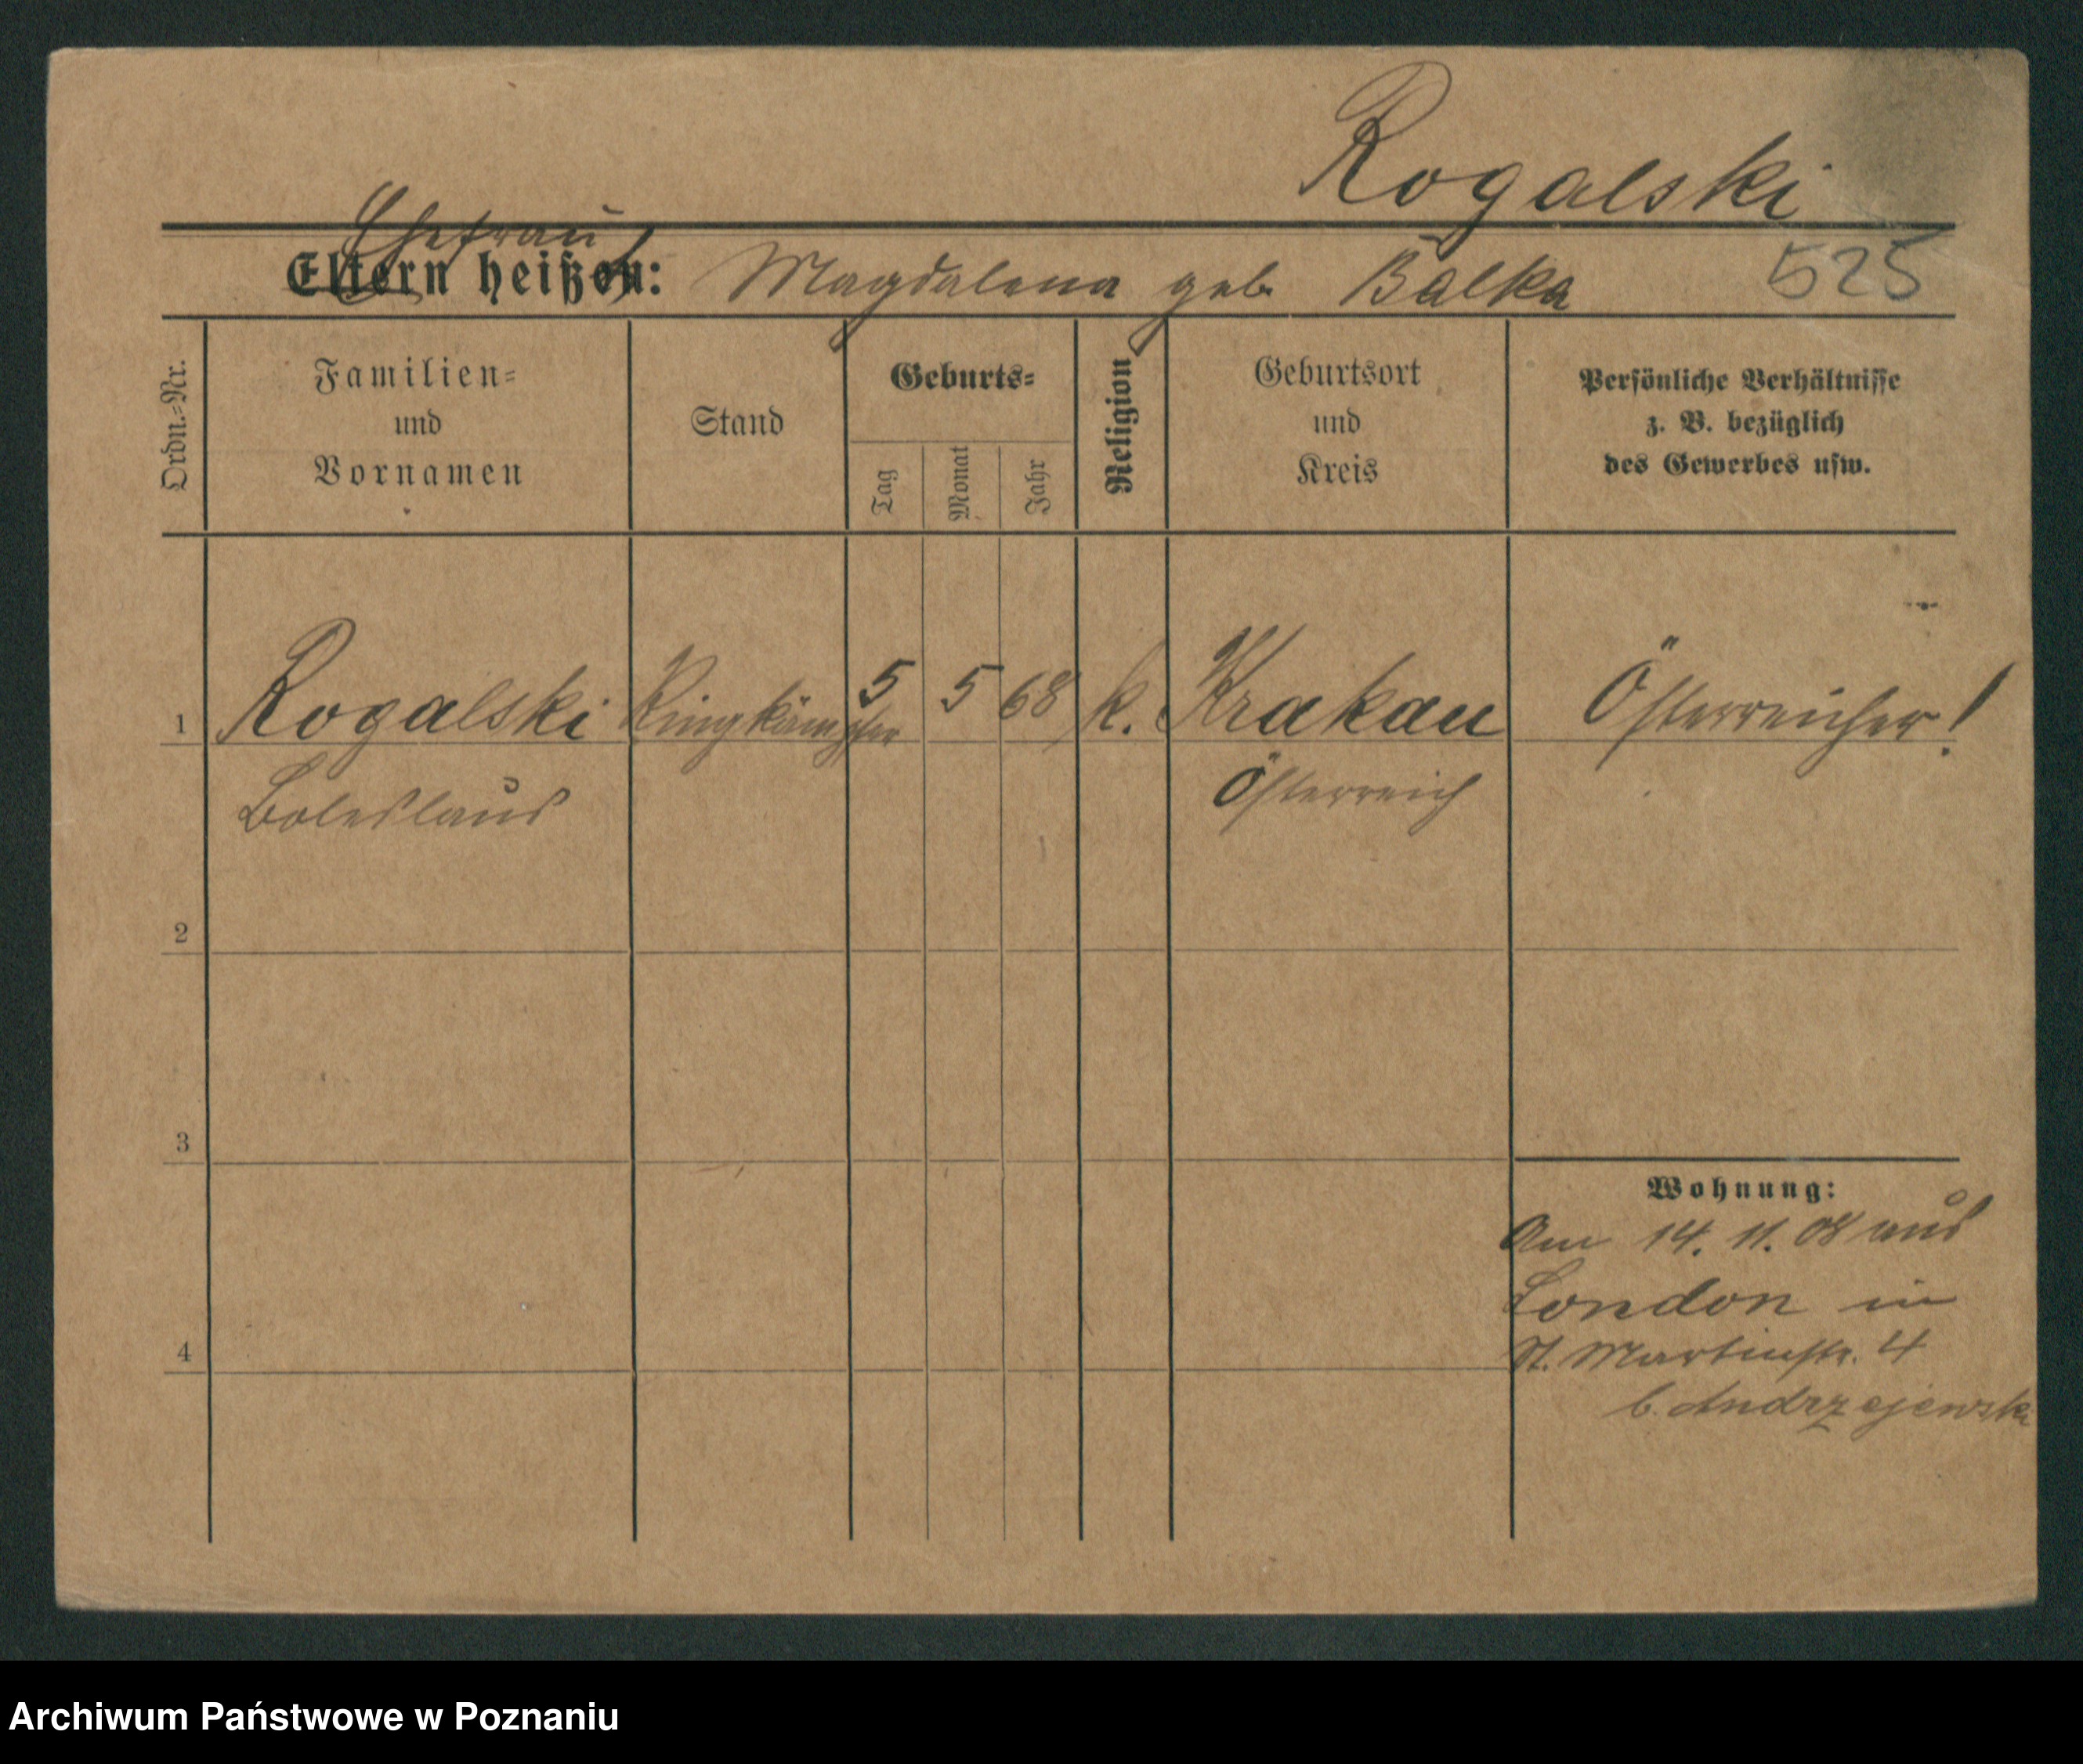 Rogalski
Ehefrau
Eltern heißen: Magdalena geb. Balka 525
Ordn.-Nr.
Familien-
und
Vornamen
Stand
Geburts-
Tag
Monat
Jahr
Religion
Geburtsort
und
Kreis
Persönliche Verhältnisse
z. B. bezüglich
des Gewerbes usw.
1 Rogalski Ringkämpfer 5 5 68 k. Krakau Österreicher!
Boleslaus Österreich
2
3
Wohnung:
Am 14. 11. 08 aus
London in
4 St. Martinstr. 4
b. Andrzejewska
Archiwum Państwowe w Poznaniu